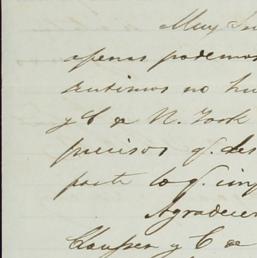 Muy
apenas podemos
sentimos no
y C.ª N. York
precisos q.
parte lo q.
Agradece
y C.ª de